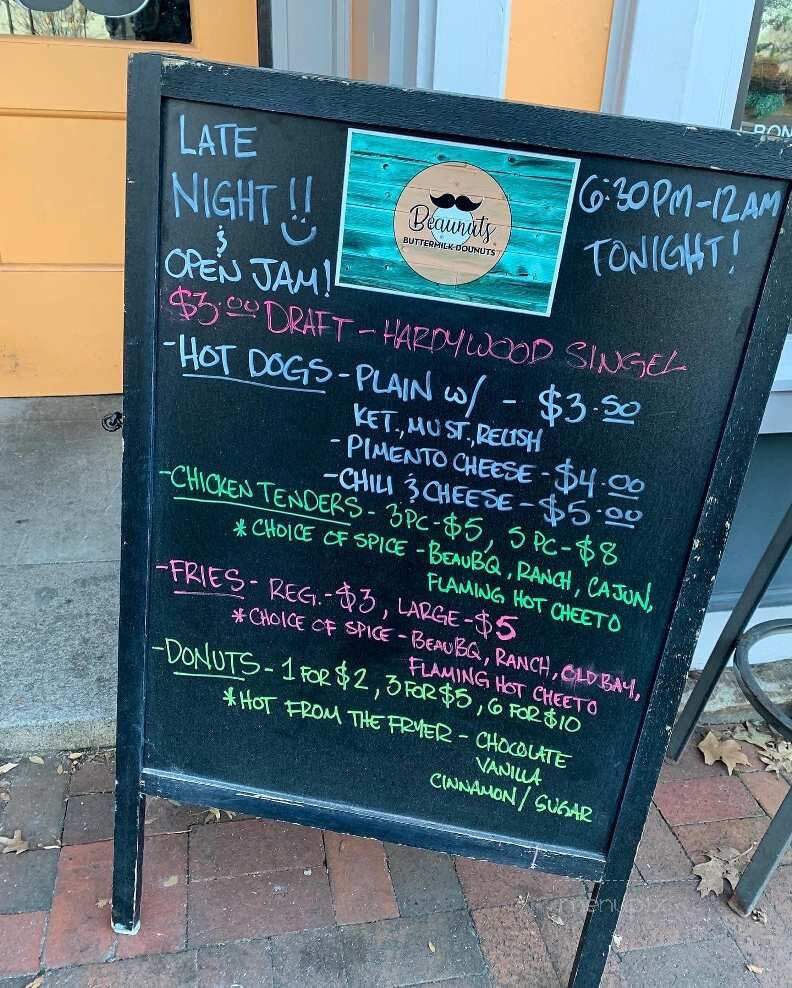 LATE
NIGHT !!
&
OPEN JAM!
Beaunuts
BUTTERMILK DOUNUTS
6:30PM-12AM
TONIGHT!
$3.00 DRAFT - HARDYWOOD SINGEL
-HOT DOGS - PLAIN w/ - $3.50
KET., MUST., RELISH
- PIMENTO CHEESE - $4.00
-CHILI & CHEESE - $5.00
-CHICKEN TENDERS - 3PC-$5, 5 PC-$8
* CHOICE OF SPICE - BEAUBQ, RANCH, CAJUN,
FLAMING HOT CHEETO
-FRIES - REG.-$3, LARGE-$5
* CHOICE OF SPICE - BEAUBQ, RANCH, OLD BAY,
FLAMING HOT CHEETO
-DONUTS - 1 FOR $2, 3 FOR $5, 6 FOR $10
* HOT FROM THE FRYER - CHOCOLATE
VANILLA
CINNAMON/SUGAR